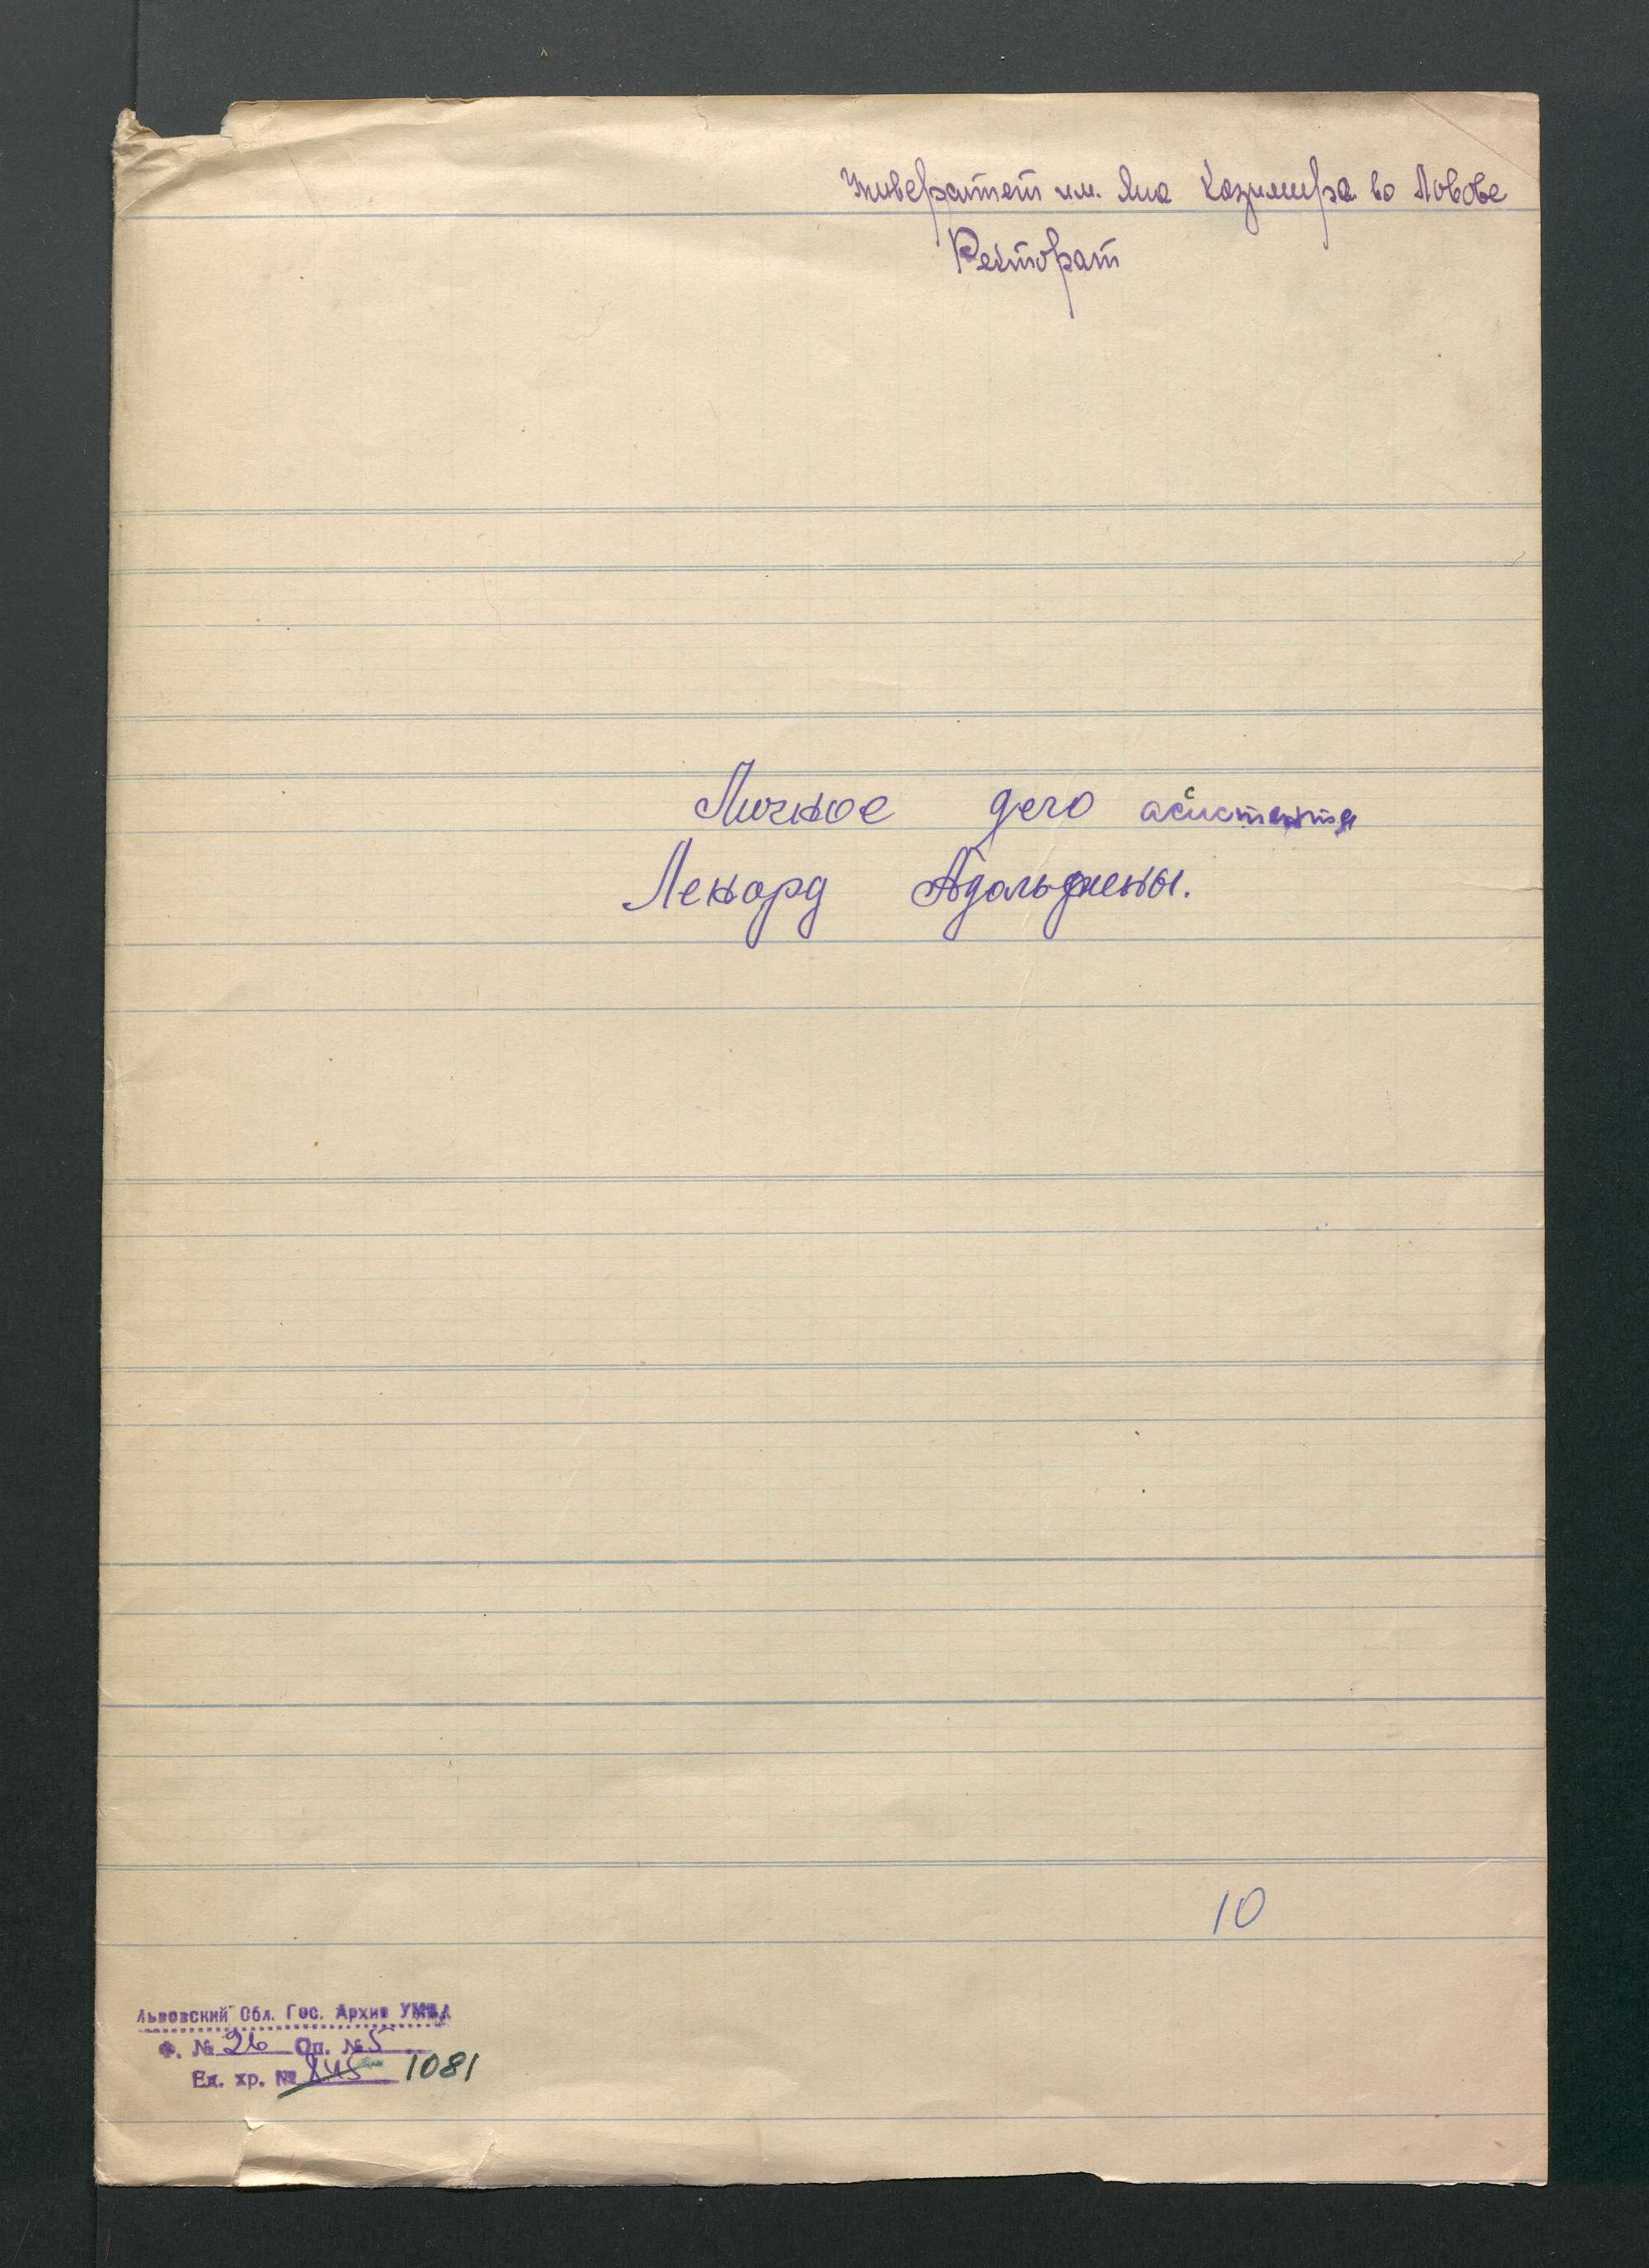 Университет им. Яна Казимира во Львове
Ректорат
Личное дело асистента
Ленорд Адольфины.
10
Львовский Обл. Гос. Архив УМВД
Ф. № 26 Оп. № 5
Ед. хр. № 845 1081